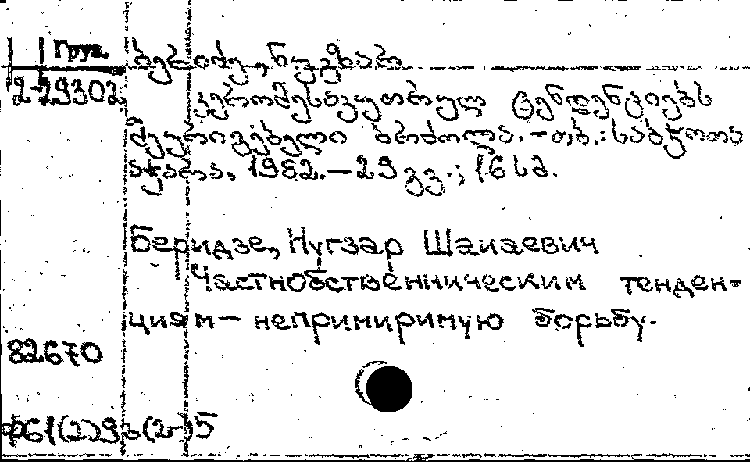 Груз.
ბერიძე, ნუგზარ
2-29302
კერძომესაკუთრულ ტენდენციებს
შეურიგებელი ბრძოლა. – თბ.: საბჭოთა
აჭარა, 1982. – 29 გვ.; 16 სმ.
Беридзе, Нугзар Шалиаевич
Частнобственническим тенден-
циям – непримиримую борьбу.
82670